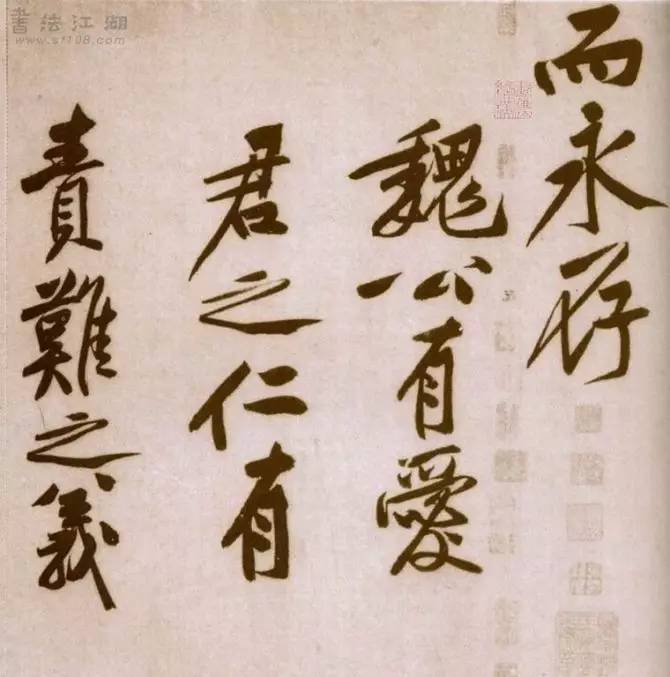 書法江湖
www.sf108.com
而永存
魏公有愛
君之仁有
責難之義